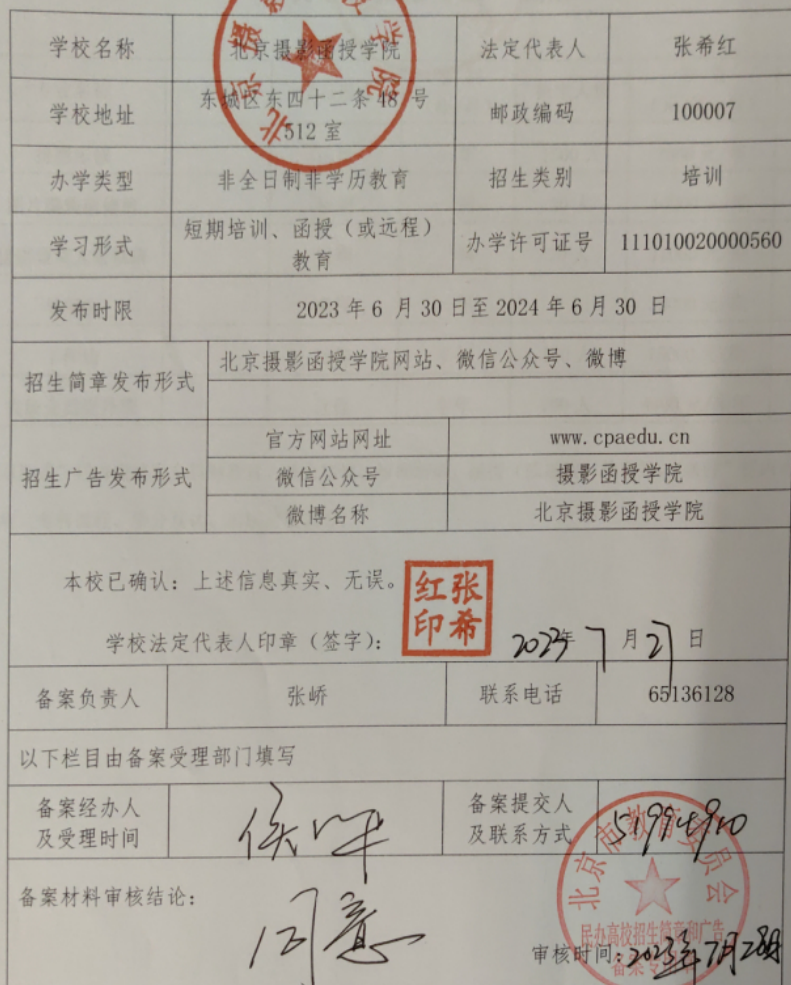 北京摄影函授学院
学校名称 北京摄影函授学院 法定代表人 张希红
学校地址 东城区东四十二条 48 号 512 室 邮政编码 100007
办学类型 非全日制非学历教育 招生类别 培训
学习形式 短期培训、函授（或远程）教育 办学许可证号 111010020000560
发布时限 2023 年 6 月 30 日至 2024 年 6 月 30 日
招生简章发布形式 北京摄影函授学院网站、微信公众号、微博
招生广告发布形式
官方网站网址 www.cpaedu.cn
微信公众号 摄影函授学院
微博名称 北京摄影函授学院
本校已确认：上述信息真实、无误。
张希红印
学校法定代表人印章（签字）： 2023年 7 月 27 日
备案负责人 张峤 联系电话 65136128
以下栏目由备案受理部门填写
备案经办人及受理时间 备案提交人及联系方式 51994910
北京市教育委员会
民办高校招生简章和广告
备案材料审核结论： 同意
审核时间：2023年7月28日